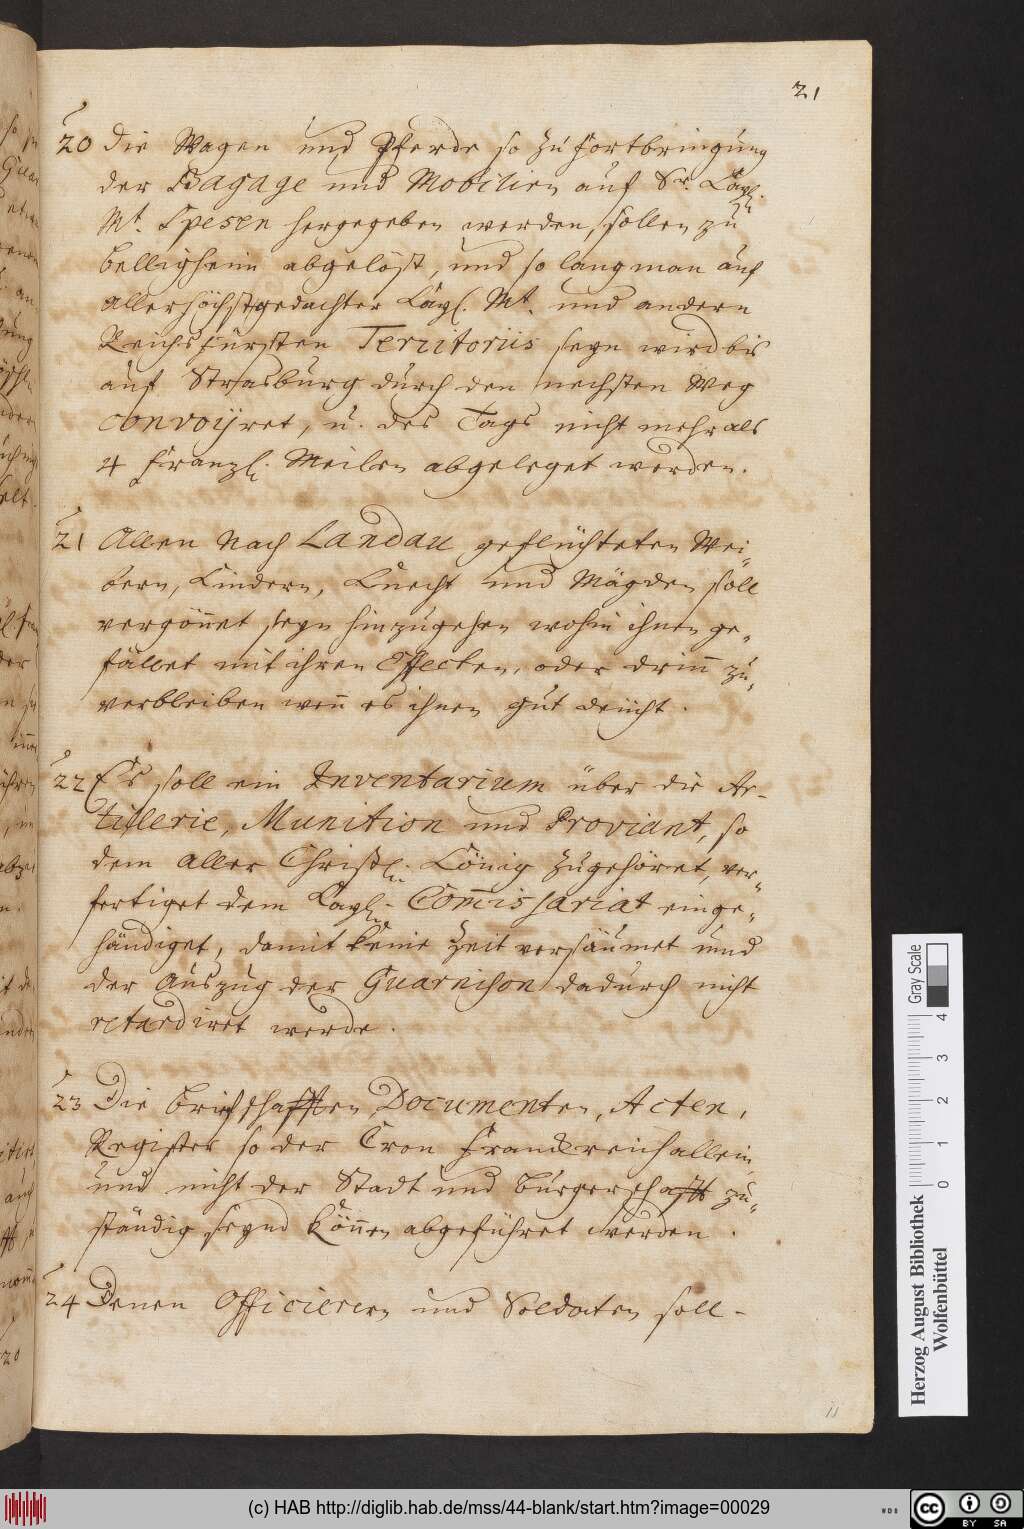 21
20 Die Wagen und Pferde so zu fortbringung
der Bagage und Mobilien auf Sr. Kayl.
Mt. Spesen hergegeben werden, sollen zu
Belligheim abgelöst, und so lang man auf
allerhöchstgedachter Kayl. Mt. und andern
Reichsfürsten Territoriis seyn wird bis
auf Strasburg durch den nechsten Weg
convoijret, u. des Tags nicht mehr als
4 Franzl. Meilen abgeleget werden.
21 Allen nach Landau geflüchteten Wei-
bern, Kindern, Knecht und Mägden soll
vergönnet seyn hinzugehen wohin ihnen ge-
fället mit ihren Effecten, oder drinn zu
verbleiben wenn es ihnen gut deucht.
22 Es soll ein Inventarium über die Ar-
tillerie, Munition und Proviant, so
dem Aller Christl. König zugehöret, ver-
fertiget dem Kayl. Commissariat einge-
händiget, damit keine Zeit versäumet und
der Auszug der Guarnison dadurch nicht
retardiret werde.
23 Die briefschafften Documenten, Acten,
Register so der Cron Franckreich allein
und nicht der Stadt und Bürgerschafft zu-
ständig seynd können abgeführet werden.
24 Denen Officierern und Soldaten soll-
11
Herzog August Bibliothek
Wolfenbüttel
Gray Scale
0 1 2 3 4
(c) HAB http://diglib.hab.de/mss/44-blank/start.htm?image=00029
WDB
cc BY SA